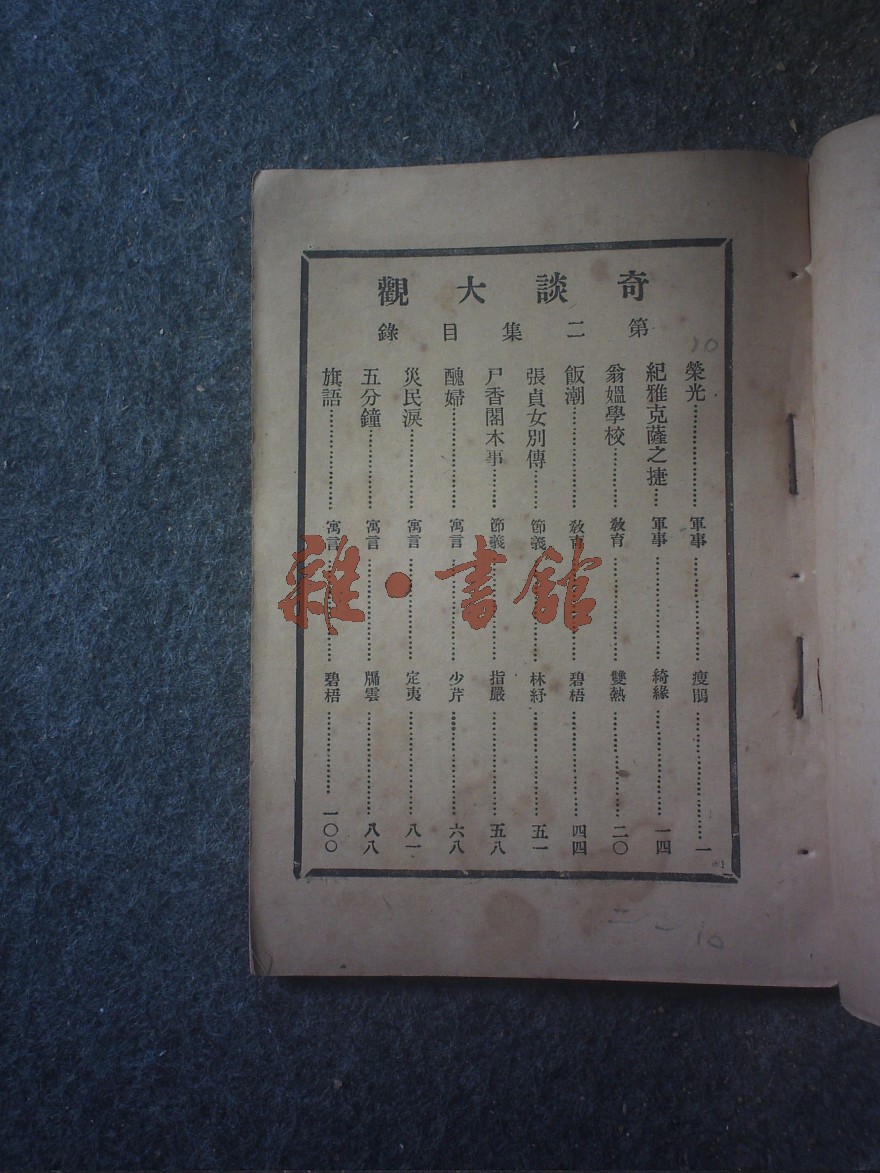 奇談大觀
第二集目錄
榮光……軍事……瘦鵑……一
紀雅克薩之捷……軍事……綺緣……一四
翁媼學校……教育……雙熱……二〇
飯潮……教育……碧梧……四四
張貞女別傳……節義……林紓……五一
尸香閣本事……節義……指嚴……五八
醜婦……寓言……少芹……六八
災民淚……寓言……定夷……八一
五分鐘……寓言……牖雲……八八
旗語……寓言……碧梧……一〇〇
雜·書館
10
10